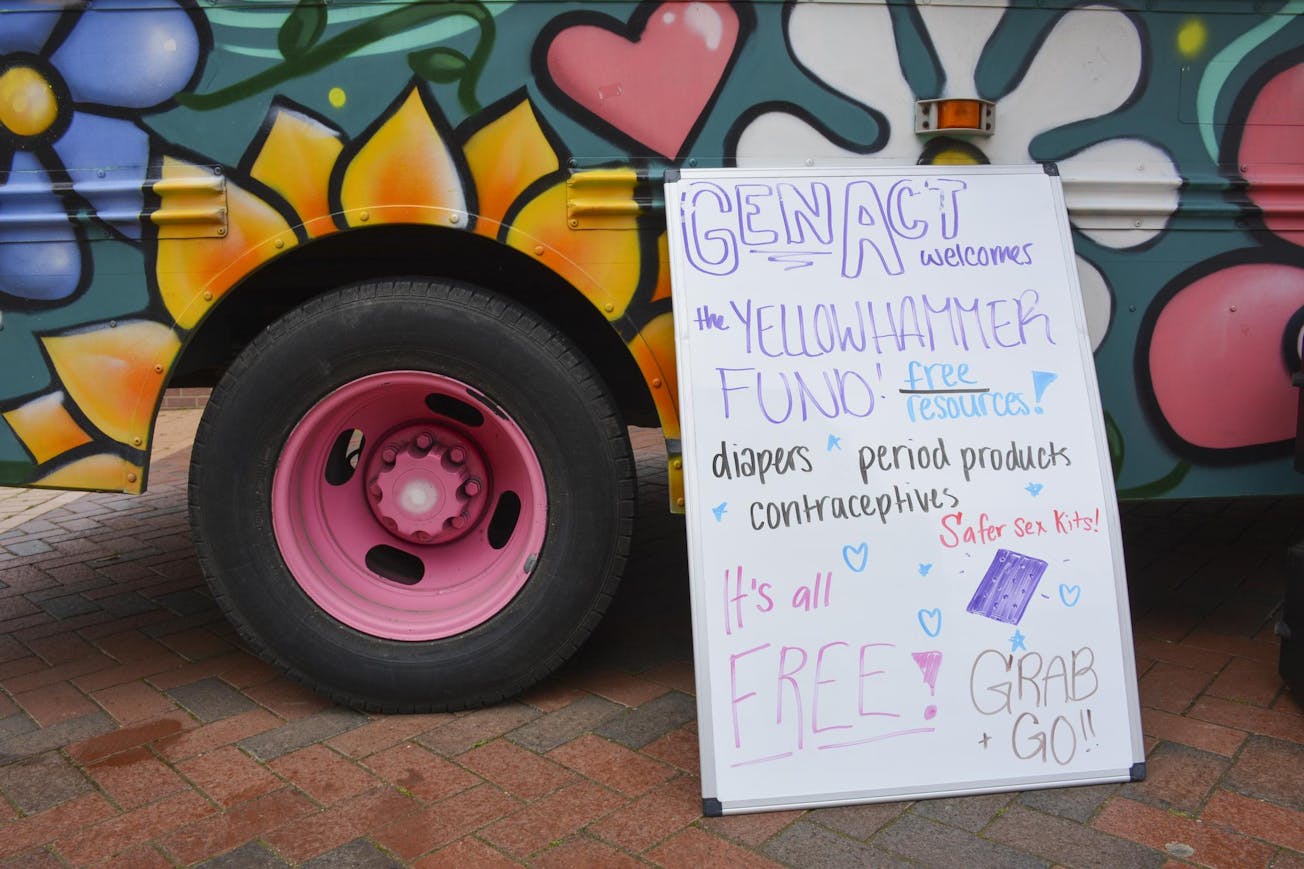 GEN ACT
welcomes
the YELLOWHAMMER
FUND! free
resources!
diapers period products
contraceptives
Safer sex Kits!
It's all
FREE!
GRAB
+ GO!!